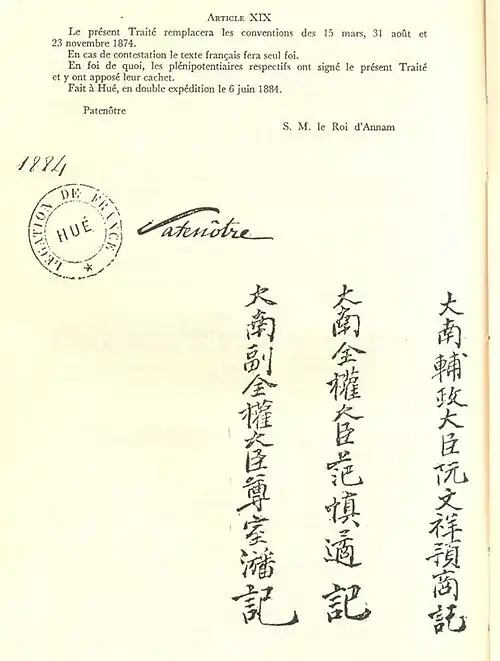 ARTICLE XIX
Le présent Traité remplacera les conventions des 15 mars, 31 août et
23 novembre 1874.
En cas de contestation le texte français fera seul foi.
En foi de quoi, les plénipotentiaires respectifs ont signé le présent Traité
et y ont apposé leur cachet.
Fait à Hué, en double expédition le 6 juin 1884.
Patenôtre
S. M. le Roi d'Annam
1884
LÉGATION DE FRANCE
HUÉ
Patenôtre
大南輔政大臣阮文祥預商記
大南全權大臣范慎遹記
大南副全權大臣尊室記